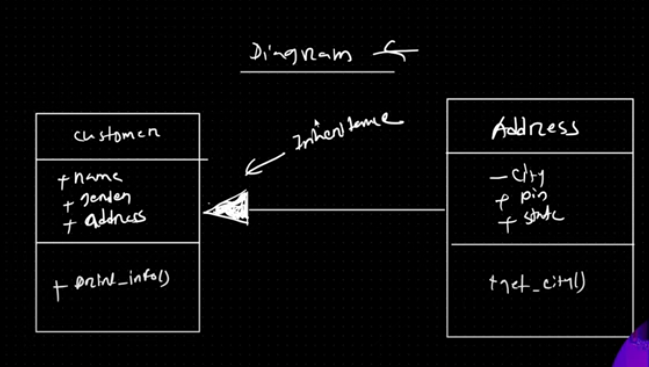 Diagram
Customer
+ name
+ gender
+ address
+ print_info()
Inheritance
Address
- city
+ pin
+ state
+ get_city()